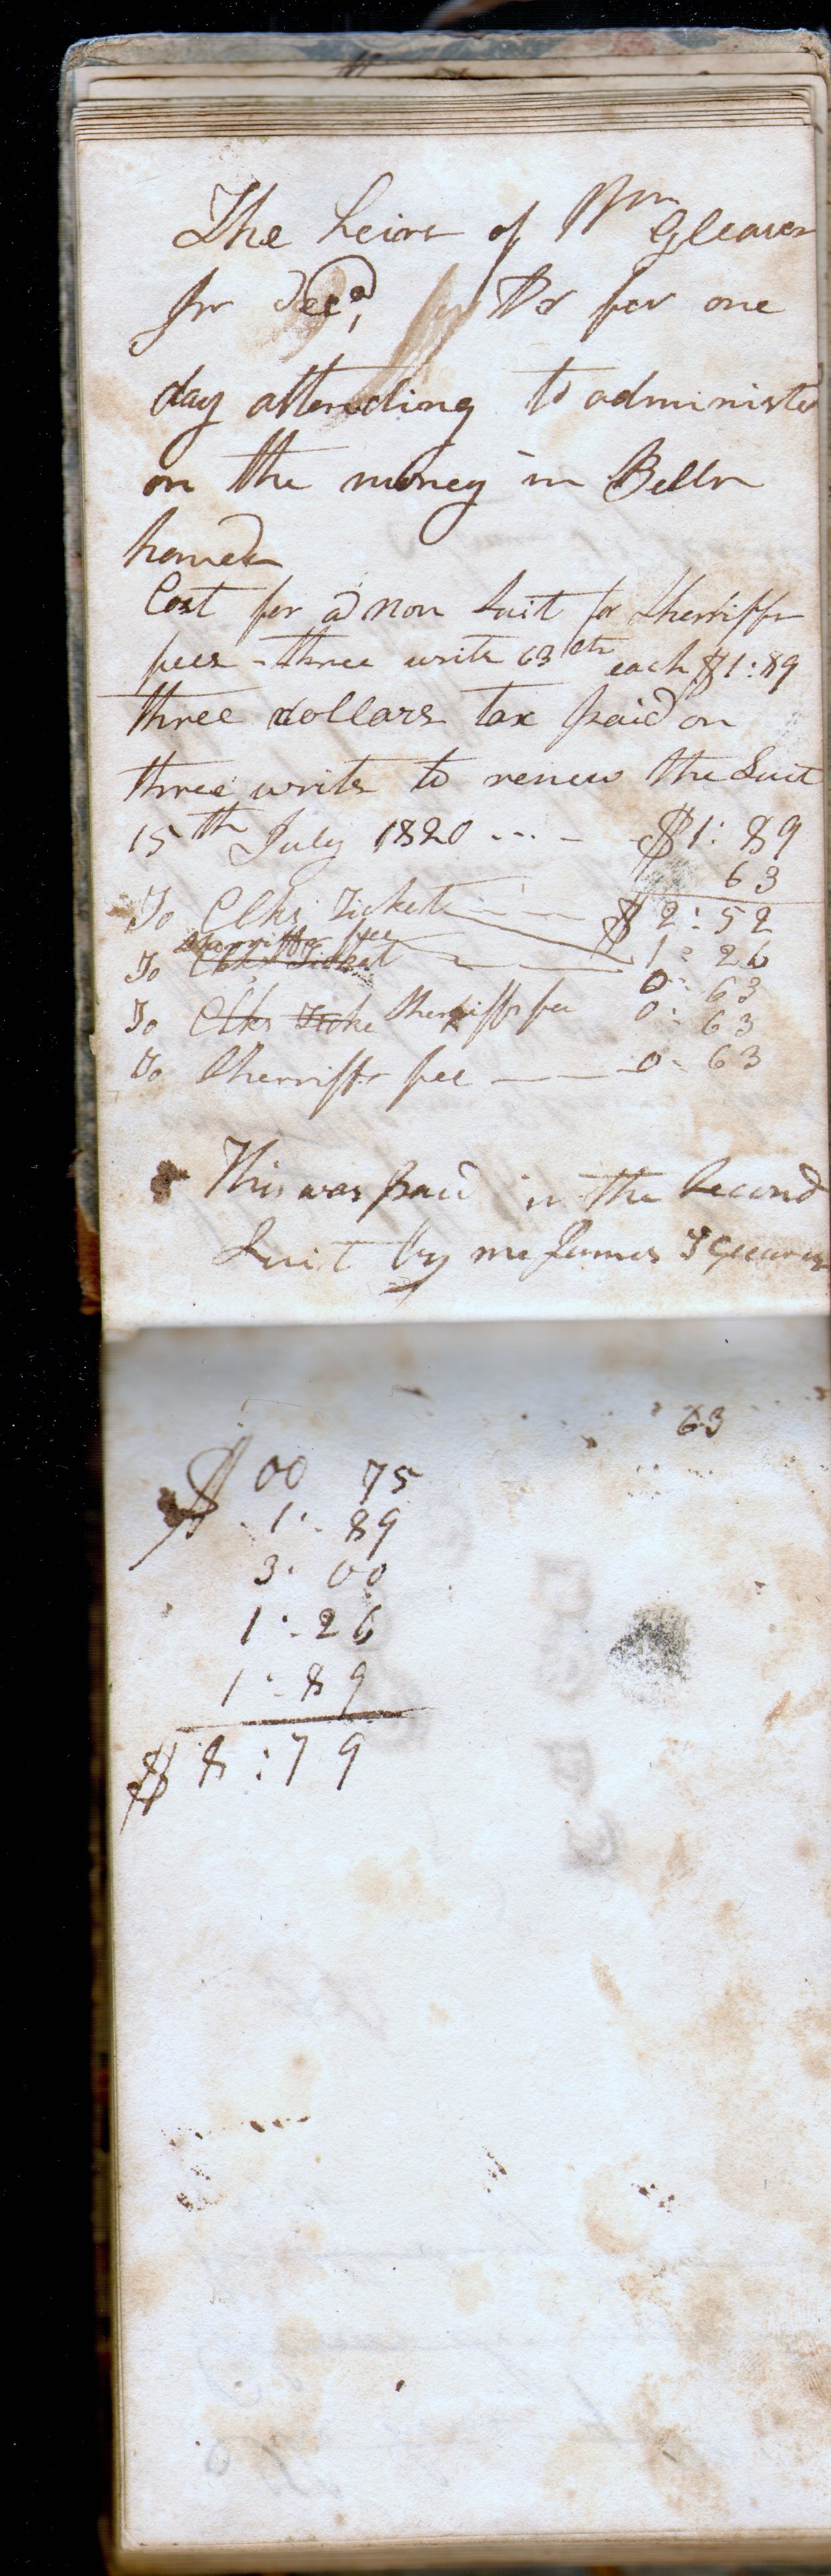 The heirs of Wm Gleaves
Jnr Decd, Dr for one
day attending to administer
on the money in Bells
hands
Cost for a non Suit for Sherriffs
fees - three writs 63 cts each $1:89
three dollars tax paid on
three writs to renew the Suit
15th July 1820 ... - $1:89
63
To Clks Ticket - - - $2:52
Sherriffs fee
To Clks Ticket - - 1:26
0:63
To Clks Ticke Sherriffs fee 0:63
To Sherriffs fee - - 0:63
This was paid in the Second
Suit by me James T Gleaves
63
$ 00 75
1:89
3:00
1:26
1:89
$8:79